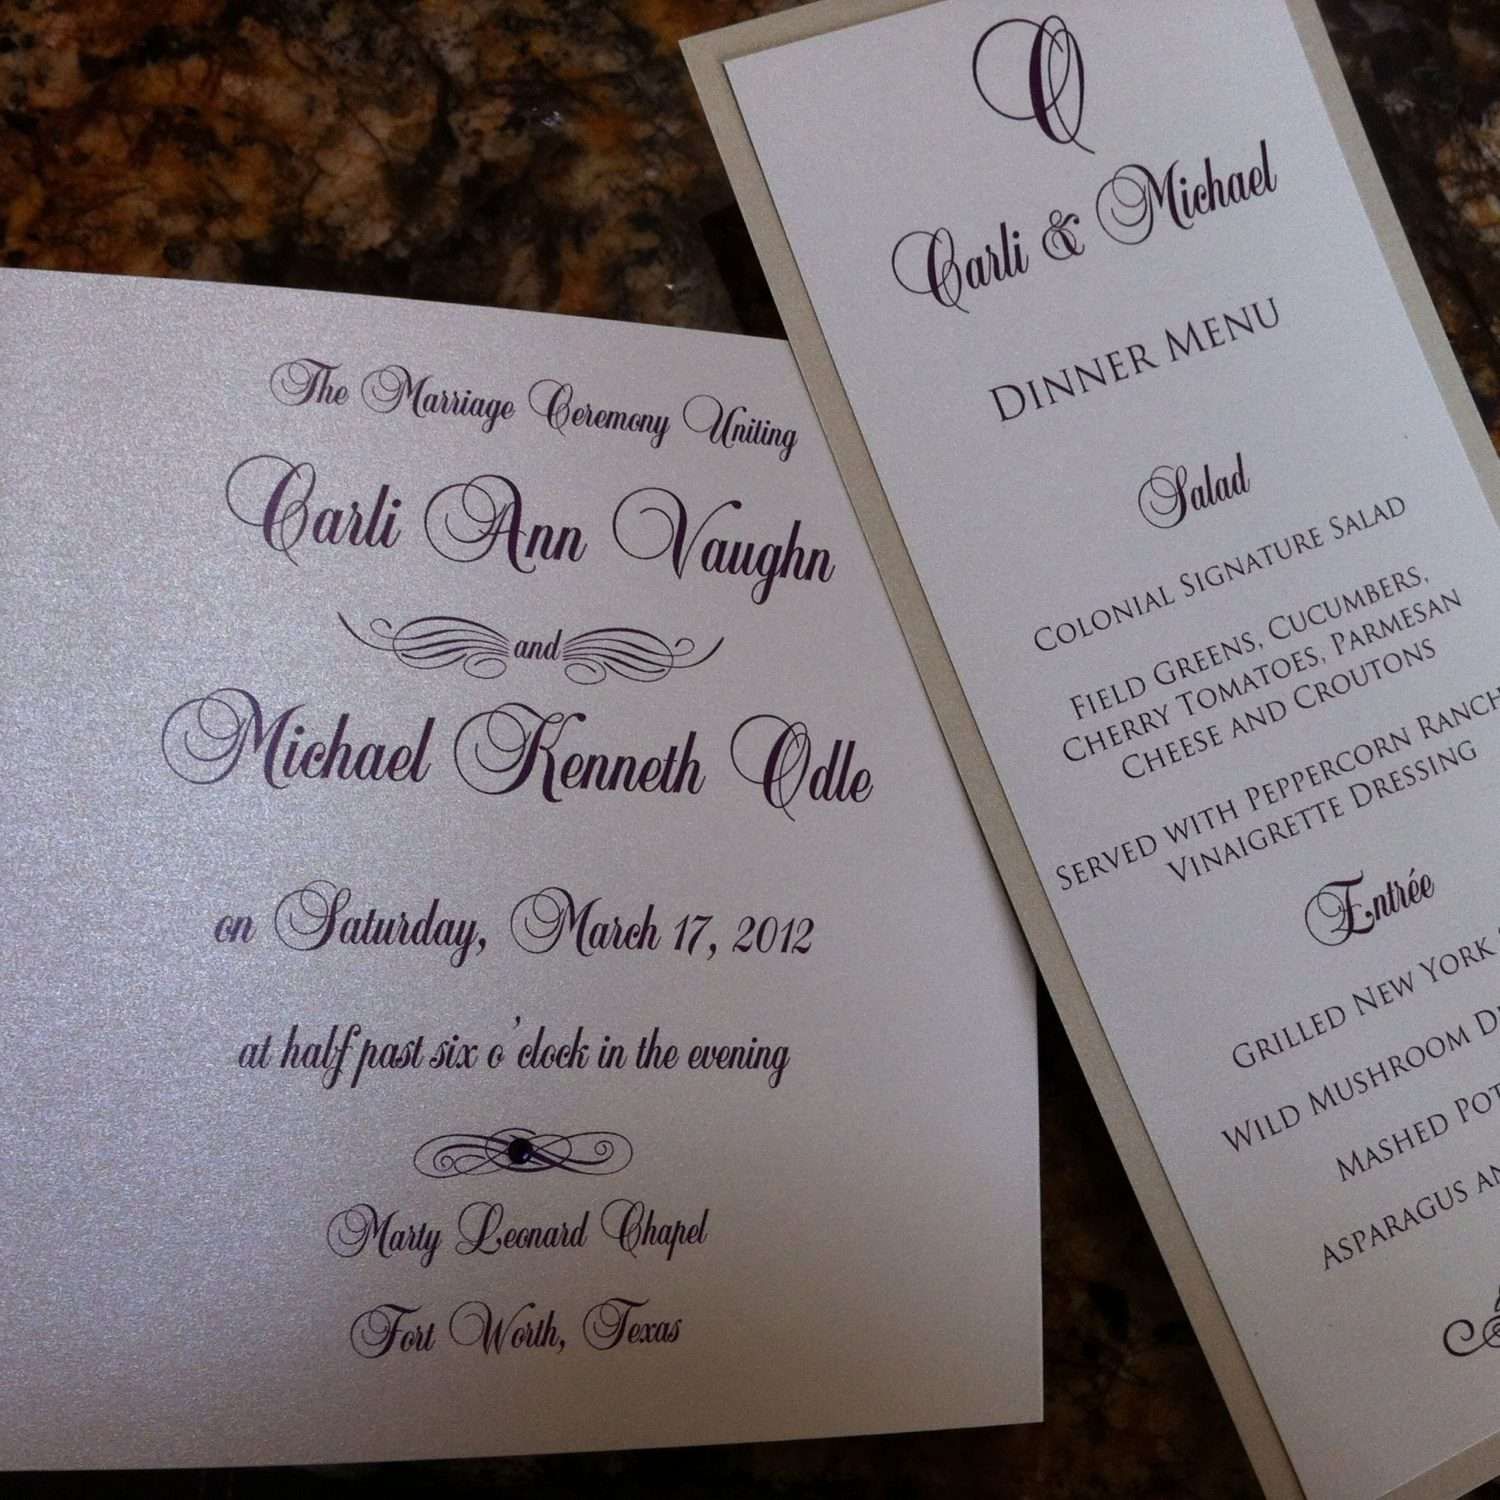 The Marriage Ceremony Uniting
Carli Ann Vaughn
and
Michael Kenneth Odle
on Saturday, March 17, 2012
at half past six o'clock in the evening
Marty Leonard Chapel
Fort Worth, Texas
O
Carli & Michael
DINNER MENU
Salad
COLONIAL SIGNATURE SALAD
FIELD GREENS, CUCUMBERS,
CHERRY TOMATOES, PARMESAN
CHEESE AND CROUTONS
SERVED WITH PEPPERCORN RANCH
VINAIGRETTE DRESSING
Entrée
GRILLED NEW YORK
WILD MUSHROOM
MASHED
ASPARAGUS